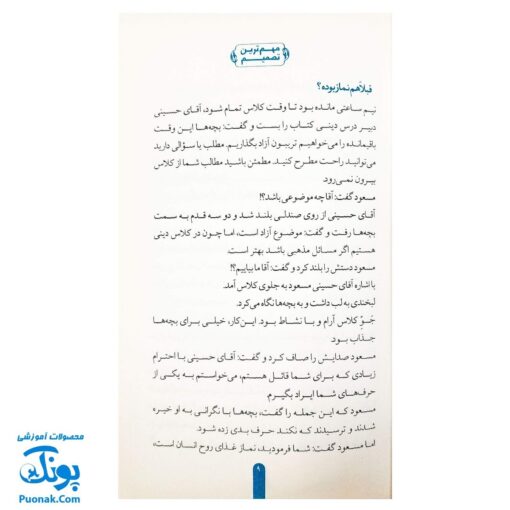 مهم‌ترین
تصمیم
قبلاً هم نماز بوده؟
نیم ساعتی مانده بود تا وقت کلاس تمام شود، آقای حسینی
دبیر درس دینی کتاب را بست و گفت: بچه‌ها این وقت
باقیمانده را می‌خواهیم تریبون آزاد بگذاریم. مطلب یا سؤالی دارید
می‌توانید راحت مطرح کنید. مطمئن باشید مطالب شما از کلاس
بیرون نمی‌رود.
مسعود گفت: آقا چه موضوعی باشد؟!
آقای حسینی از روی صندلی بلند شد و دو سه قدم به سمت
بچه‌ها رفت و گفت: موضوع آزاد است، اما چون در کلاس دینی
هستیم اگر مسائل مذهبی باشد بهتر است.
مسعود دستش را بلند کرد و گفت: آقا ما بیاییم؟!
با اشاره آقای حسینی مسعود به جلوی کلاس آمد.
لبخندی به لب داشت و به بچه‌ها نگاه می‌کرد.
جَوّ کلاس آرام و با نشاط بود. این‌کار، خیلی برای بچه‌ها
جذاب بود.
مسعود صدایش را صاف کرد و گفت: آقای حسینی با احترام
زیادی که برای شما قائل هستم، می‌خواستم به یکی از
حرف‌های شما ایراد بگیرم.
مسعود که این جمله را گفت، بچه‌ها با نگرانی به او خیره
شدند و ترسیدند که نکند حرف بدی زده شود.
اما مسعود گفت: شما فرمودید، نماز غذای روح انسان است،
۹
محصولات آموزشی
پونک
Puonak.Com